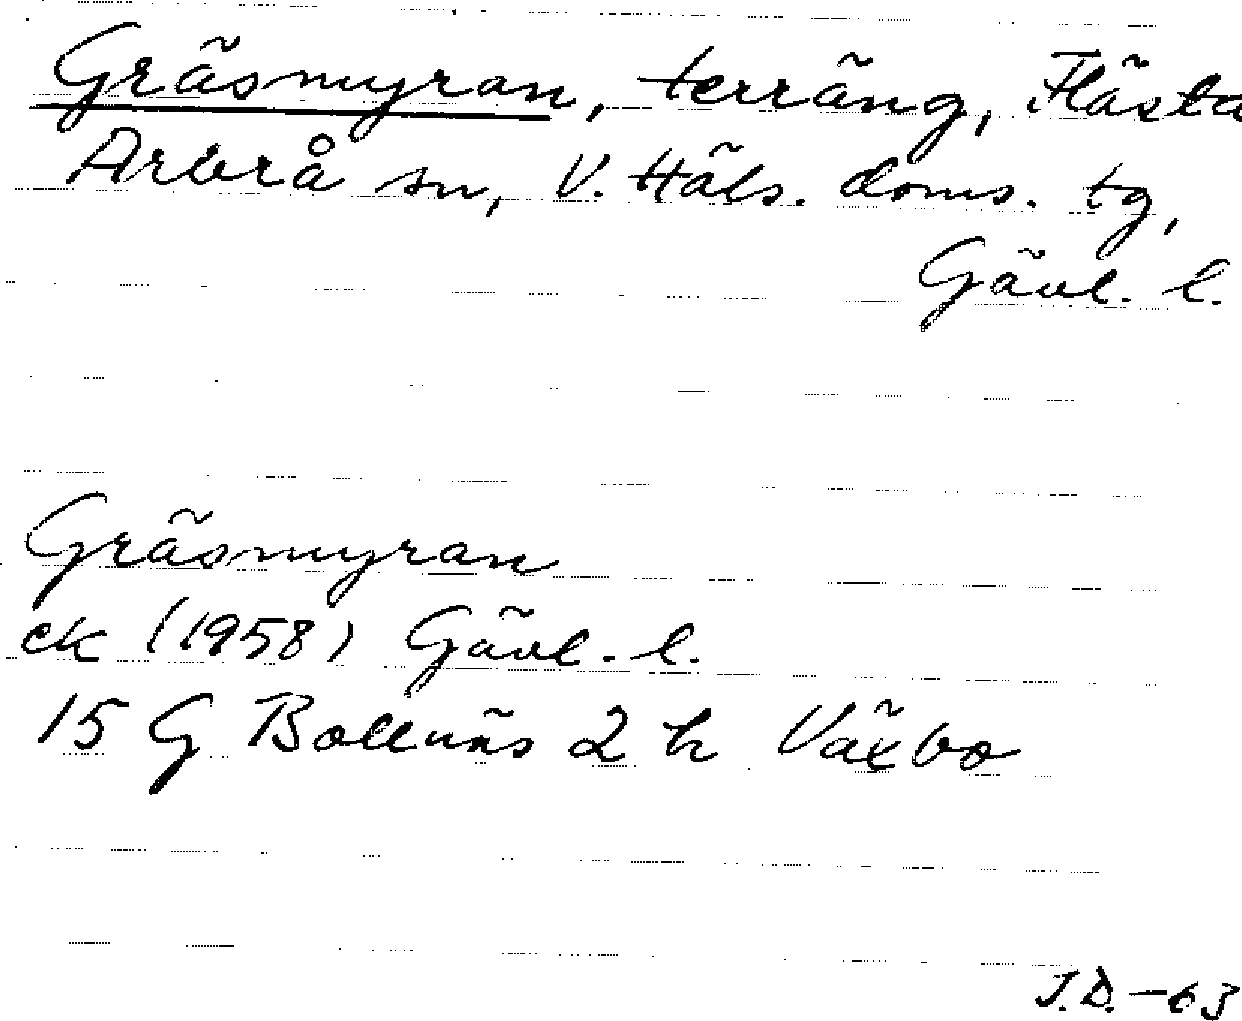 Gräsmyran, terräng, Flästa
Arbrå sn, V. Häls. doms. tg,
Gävl. l.
Gräsmyran
ek (1958) Gävl. l.
15 G Bollnäs 2 h Växbo
J.D.-63